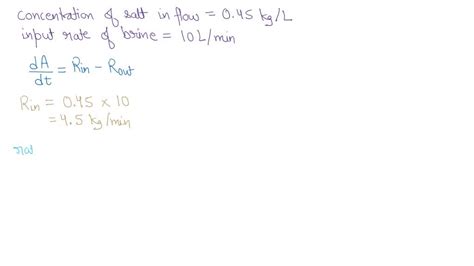 concentration of salt in flow = 0.45 kg/L
input rate of brine = 10 L/min
dA/dt = Rin - Rout
Rin = 0.45 x 10
= 4.5 kg/min